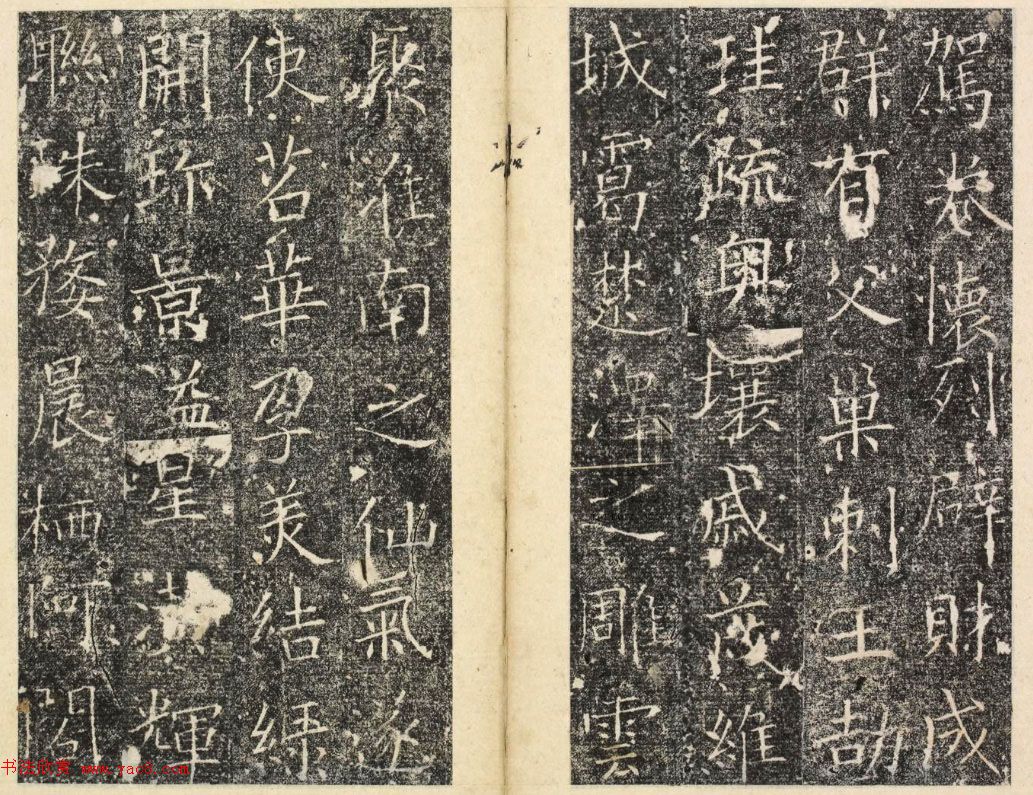 駕卷懷列辟財成
群有父巢刺王劼
珪疏奧壤戚茂維
城靄楚澤之雕雲
聚淮南之仙氣遂
使苕華孕美結
開珎景溢星潢輝
聯珠婺晨栖阿閣
书法欣赏 www.yac8.com